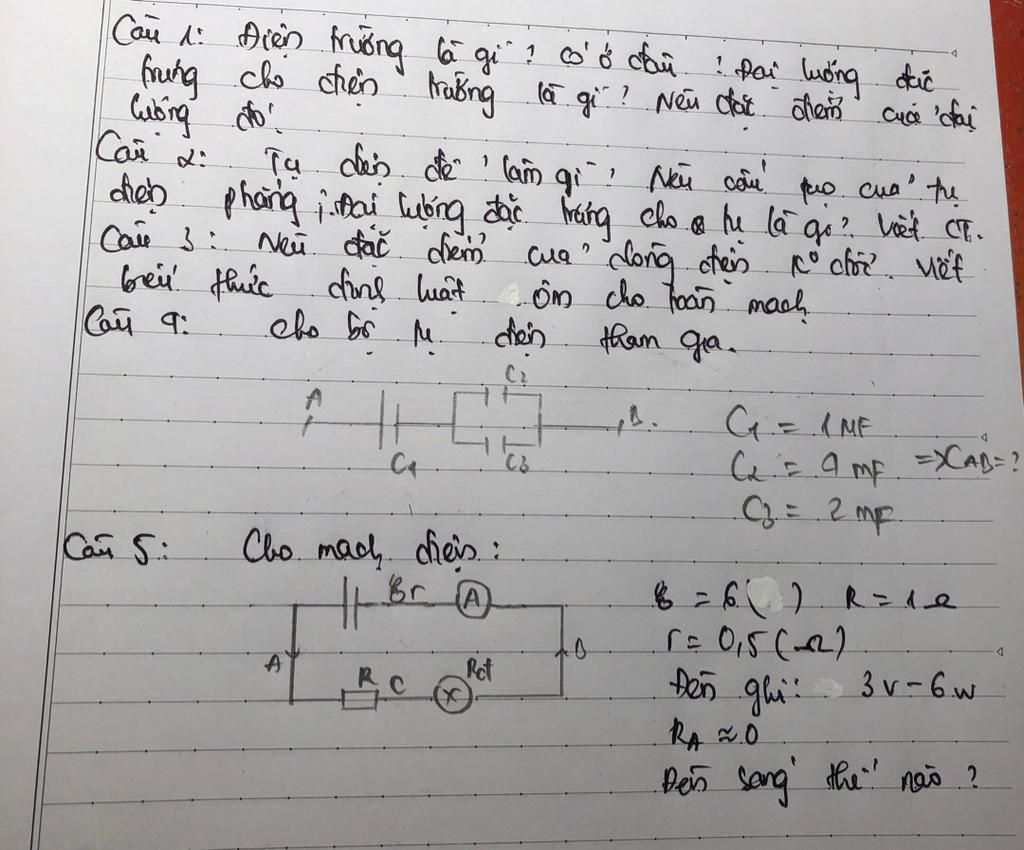 Câu 1: Điện trường là gì? có ở đâu? Đại lượng đặc
trưng cho điện trường là gì? Nêu đặc điểm của đại
lượng đó.
Câu 2: Tụ điện để làm gì? Nêu cấu tạo của tụ
điện phẳng; Đại lượng đặc trưng cho tụ là gì? Viết CT.
Câu 3: Nêu đặc điểm của dòng điện K° đổi. Viết
biểu thức định luật ôm cho toàn mạch
Câu 4: cho bộ tụ điện tham gia.
A C1 C2 C3 B.
C1 = 1 MF
C2 = 4 MF => CAB = ?
C3 = 2 MF
Câu 5: Cho mạch điện:
ℰ r A
A B
R C Rđ X
ℰ = 6 ( ) R = 1 Ω
r = 0,5 (Ω)
Đèn ghi: 3V - 6W
RA ≈ 0
Đèn sáng thế nào?